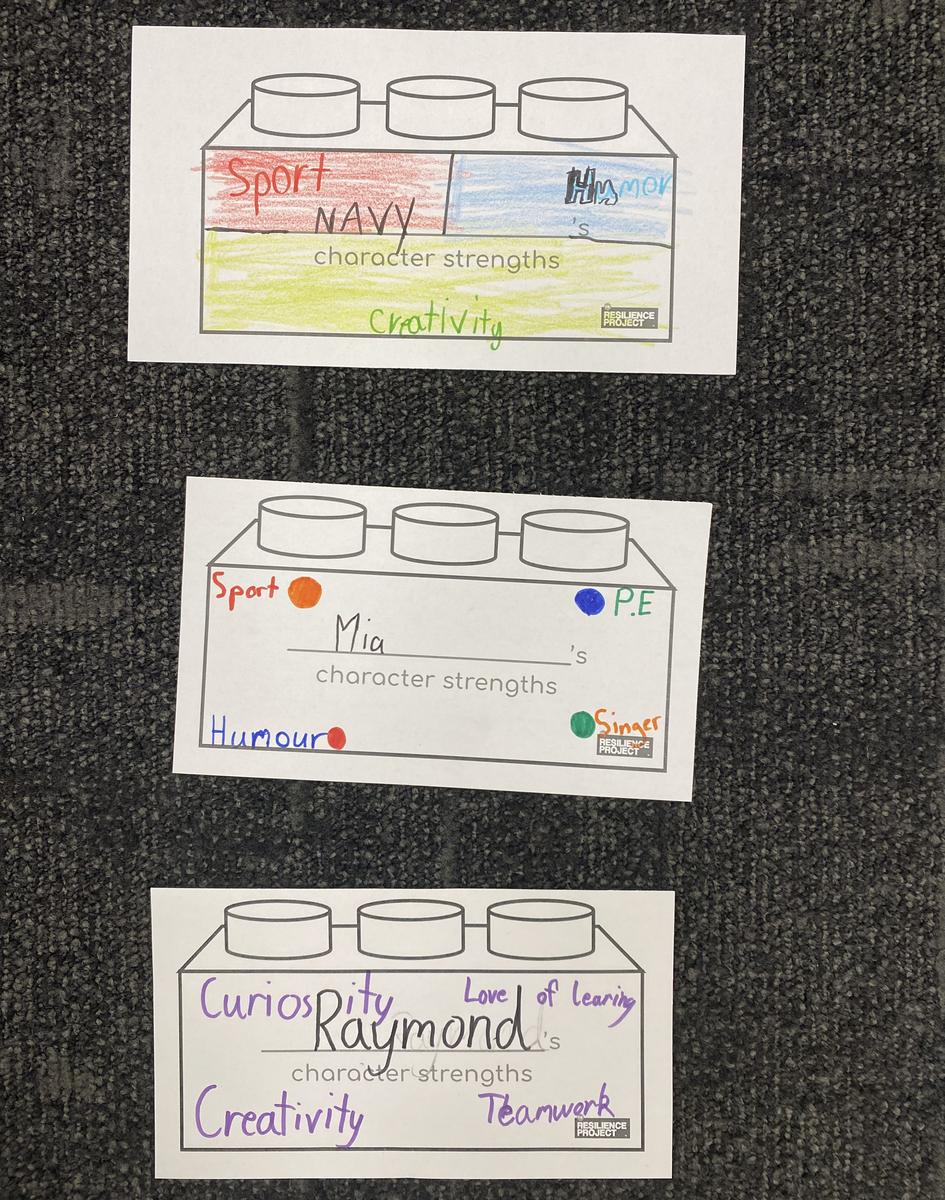 Sport
Humor
NAVY
's
character strengths
Creativity
RESILIENCE
PROJECT
Sport
P.E
Mia
's
character strengths
Humour
Singer
RESILIENCE
PROJECT
Curiosity
Love of learing
Raymond
's
character strengths
Creativity
Teamwork
RESILIENCE
PROJECT